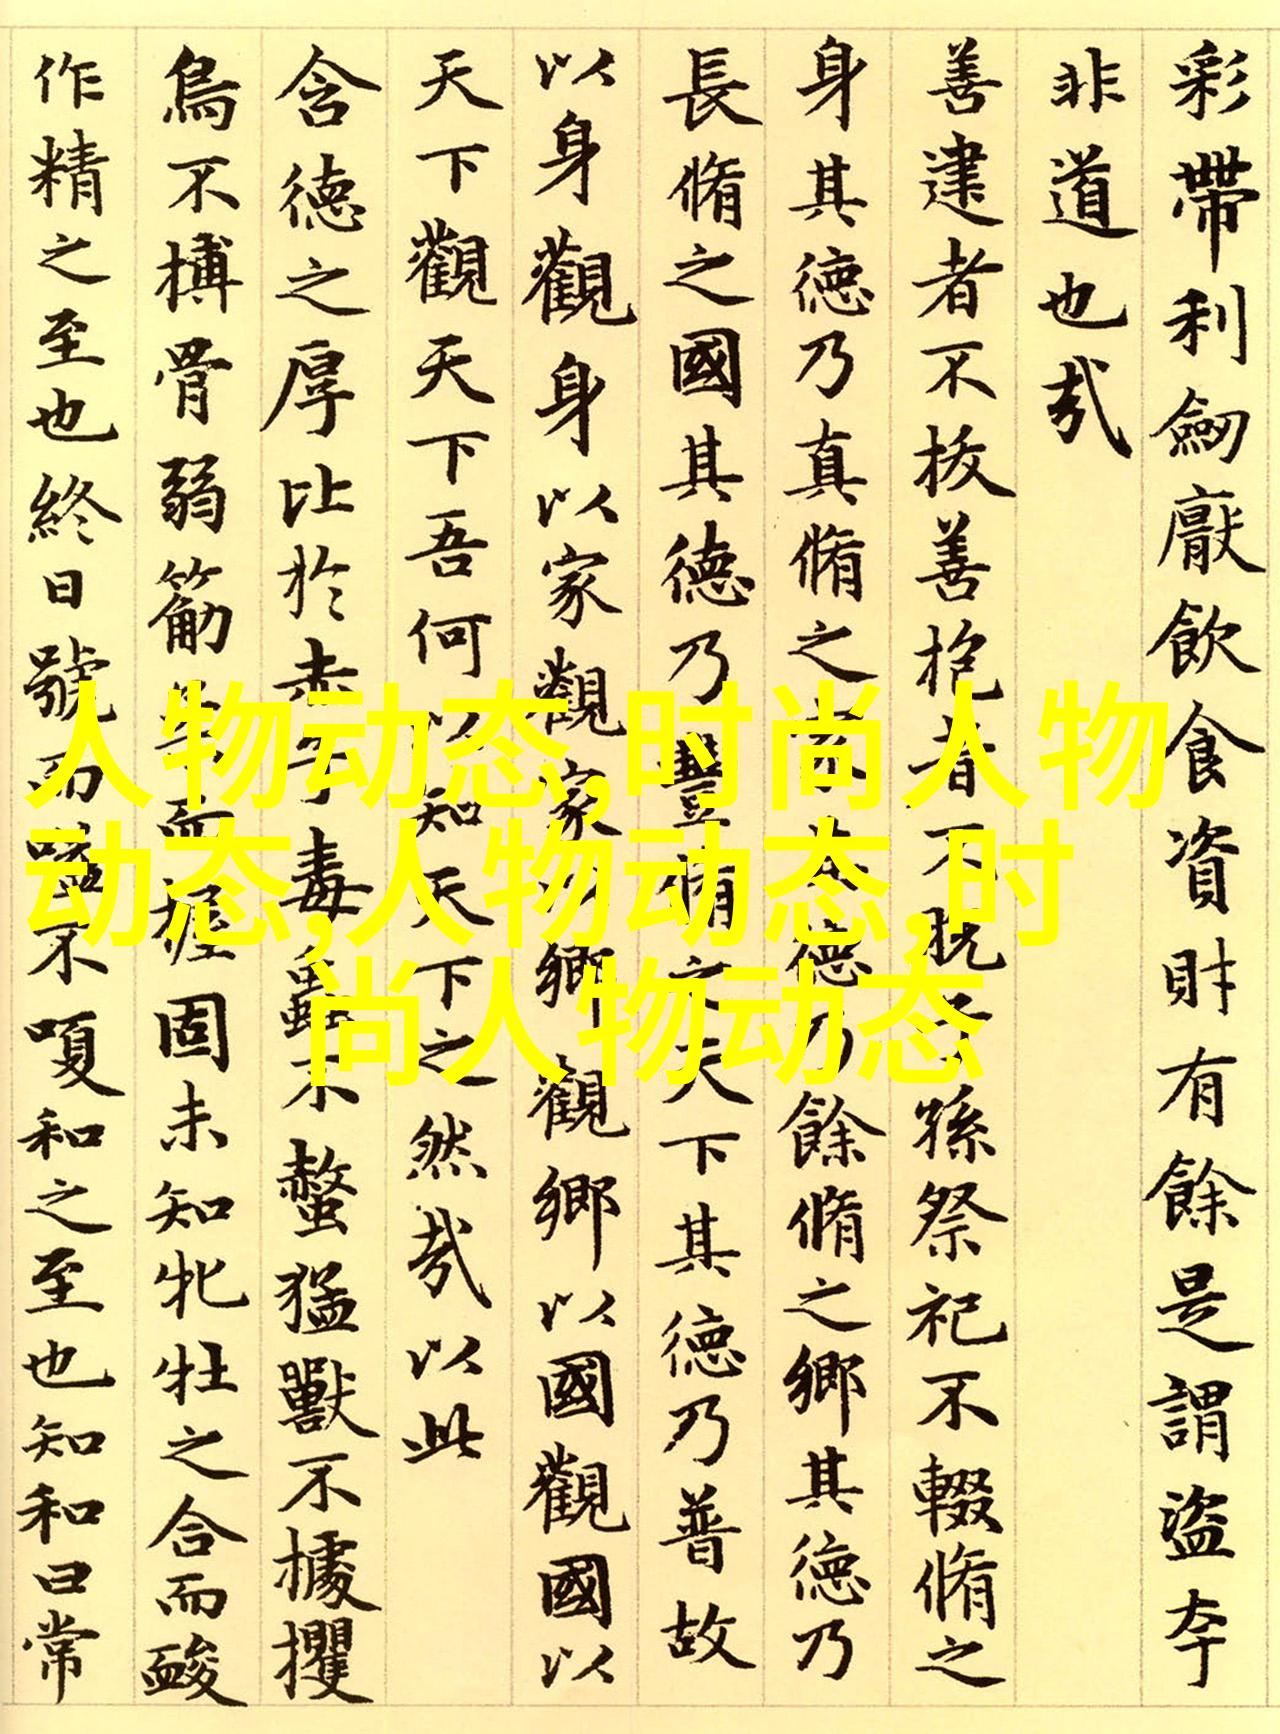 彩帶利劒厭飲食資財有餘是謂盜夸
非道也哉
善建者不拔善抱者不脫子孫祭祀不輟脩之
身其德乃真脩之家其德乃餘脩之鄉其德乃
長脩之國其德乃豐脩之天下其德乃普故
以身觀身以家觀家以鄉觀鄉以國觀國以
天下觀天下吾何以知天下之然哉以此
含德之厚比於赤子毒蟲不螫猛獸不據攫
鳥不搏骨弱筋柔而握固未知牝牡之合而酸
作精之至也終日號而嗌不嗄和之至也知和曰常
人物动态,时尚人物
动态,人物动态,时
尚人物动态